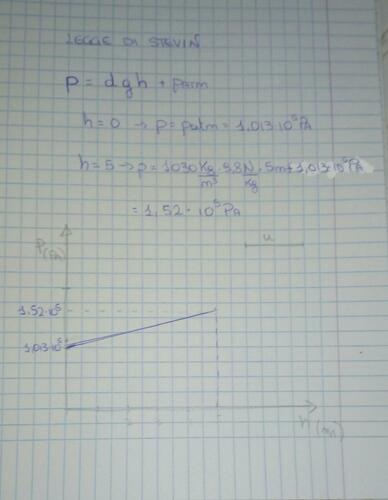 LEGGE DI STEVIN
p = dgh + patm
h=0 → p = patm = 1,013·10⁵Pa
h=5 → p = 1030 Kg/m³ · 9,8 N/Kg · 5m + 1,013·10⁵Pa
= 1,52 · 10⁵ Pa
P(Pa)
u
1,52·10⁵
1,013·10⁵
h (m)